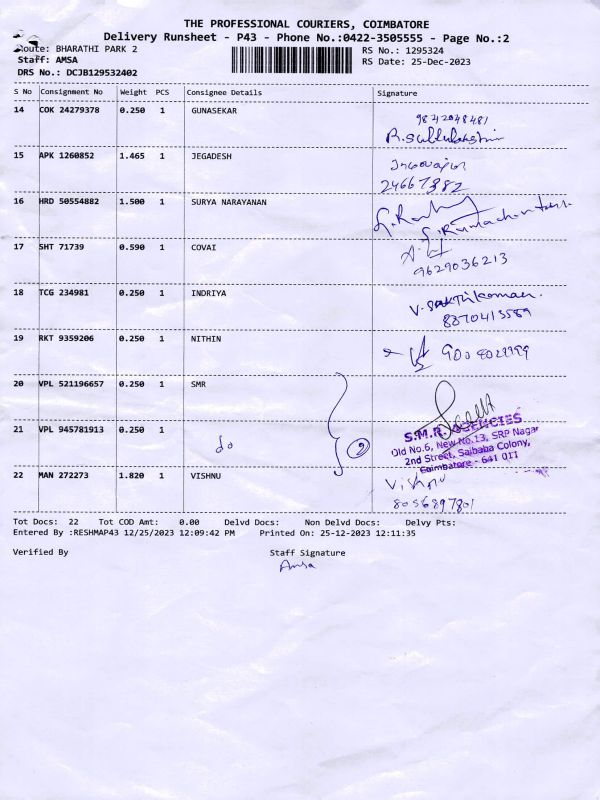 THE PROFESSIONAL COURIERS, COIMBATORE
Delivery Runsheet - P43 - Phone No.:0422-3505555 - Page No.:2
Route: BHARATHI PARK 2 RS No.: 1295324
Staff: AMSA RS Date: 25-Dec-2023
DRS No.: DCJB129532402
S No Consignment No Weight PCS Consignee Details Signature
14 COK 24279378 0.250 1 GUNASEKAR
9842048481
15 APK 1260852 1.465 1 JEGADESH
24667382
16 HRD 50554882 1.500 1 SURYA NARAYANAN
17 SHT 71739 0.590 1 COVAI
9629036213
18 TCG 234981 0.250 1 INDRIYA
V. Sakthikumar.
8870413589
19 RKT 9359206 0.250 1 NITHIN
20 VPL 521196657 0.250 1 SMR
21 VPL 945781913 0.250 1 do 2
S.M.R. AGENCIES
Old No.6, New No.13, SRP Nagar
2nd Street, Saibaba Colony,
Coimbatore - 641 011
22 MAN 272273 1.820 1 VISHNU Vishnu
8056897801
Tot Docs: 22 Tot COD Amt: 0.00 Delvd Docs: Non Delvd Docs: Delvy Pts:
Entered By :RESHMAP43 12/25/2023 12:09:42 PM Printed On: 25-12-2023 12:11:35
Verified By Staff Signature
Amsa